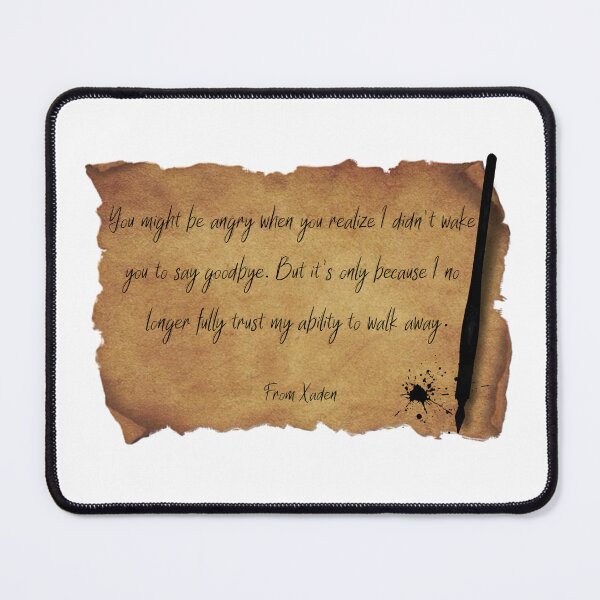 You might be angry when you realize I didn't wake
you to say goodbye. But it's only because I no
longer fully trust my ability to walk away.
From Xaden